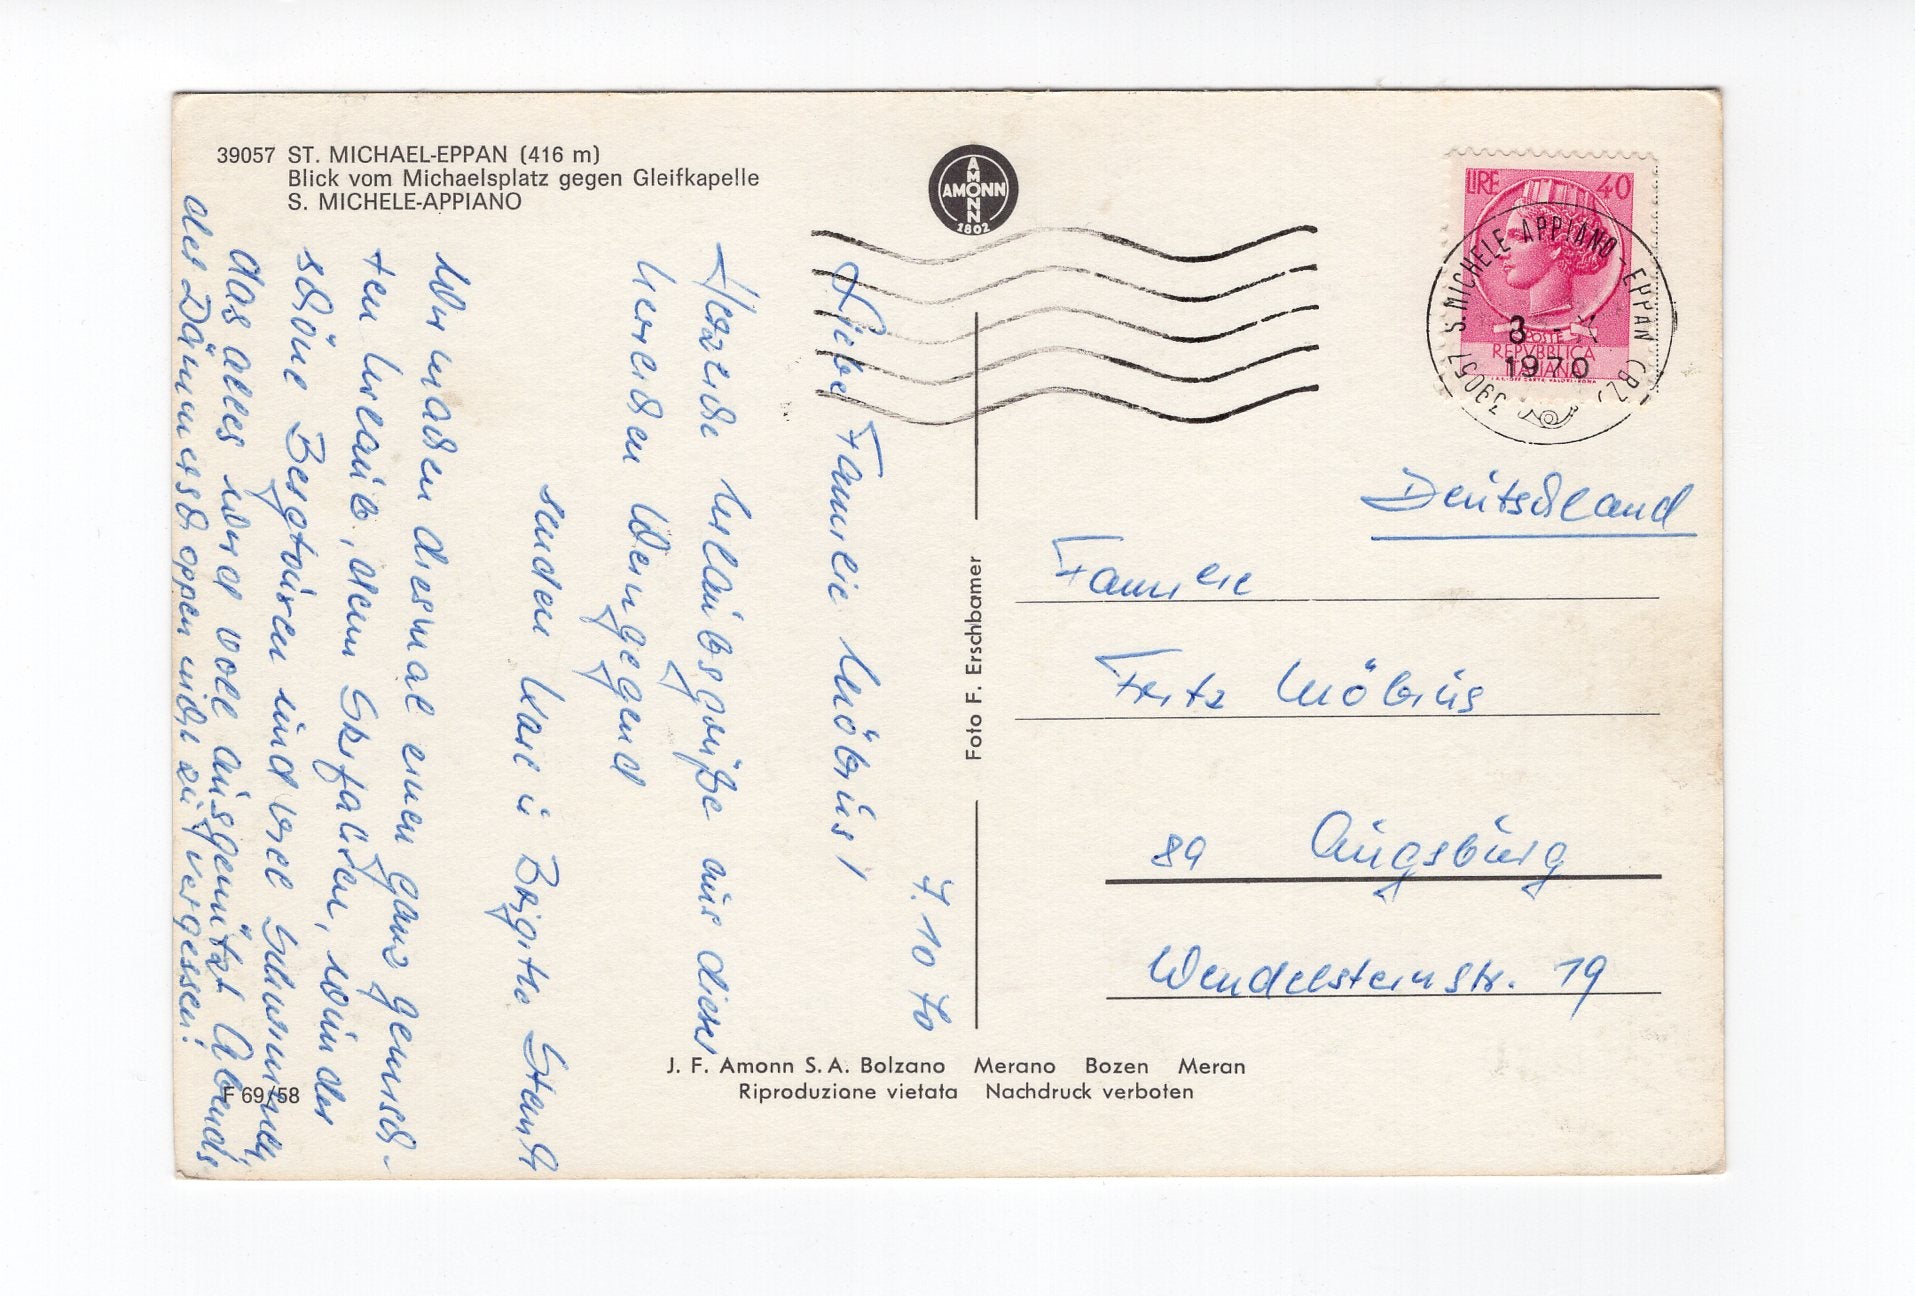 39057 ST. MICHAEL-EPPAN (416 m)
Blick vom Michaelsplatz gegen Gleifkapelle
S. MICHELE-APPIANO
AMONN
AMONN
1802
LIRE 40
POSTE
REPVBBLICA
ITALIANA
39057 S. MICHELE APPIANO - EPPAN (BZ)
3 - X
1970
7. 10 70
Liebe Familie Möbius!
Herzliche Urlaubsgrüße aus dieser
herrlichen Weingegend
senden Karl u Brigitte
Wir machen diesmal einen ganz gemisch-
ten Urlaub, denn Skifahren, wunder
schöne Bergtouren und viel Schwimmen,
das alles wird voll ausgenützt Abends
der Dämmerschoppen nicht zu vergessen!
Deutschland
Familie
Fritz Möbius
89 Augsburg
Wendelsteinstr. 19
Foto F. Erschbamer
F 69/58
J. F. Amonn S.A. Bolzano Merano Bozen Meran
Riproduzione vietata Nachdruck verboten